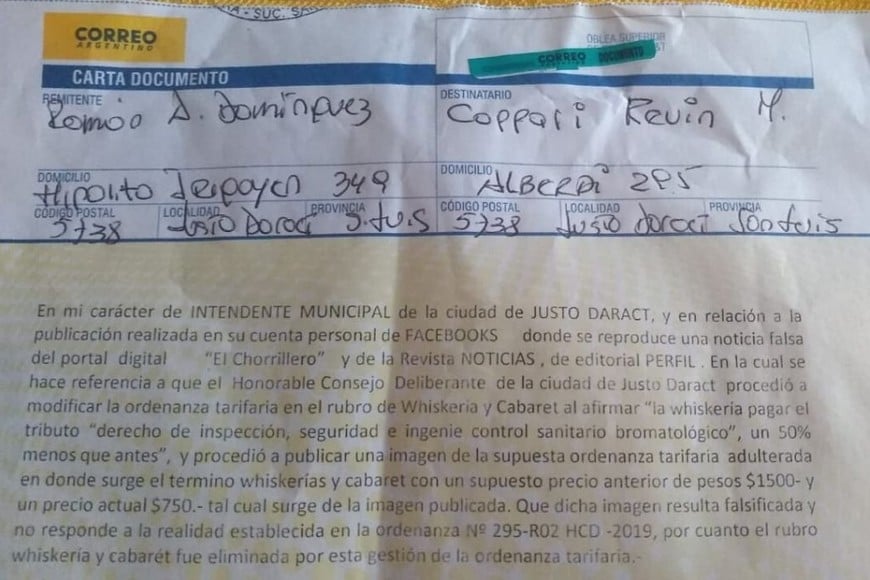 - SUC. SA
CORREO
ARGENTINO
OBLEA SUPERIOR
CORREO DOCUMENTO
CARTA DOCUMENTO
REMITENTE
DESTINATARIO
A. Domínguez
Coppari Kevin M.
DOMICILIO
DOMICILIO
Hipolito 349
ALBERDI 295
CÓDIGO POSTAL LOCALIDAD PROVINCIA
CÓDIGO POSTAL LOCALIDAD PROVINCIA
5738 Justo Daract S. Luis
5738 Justo Daract San Luis
En mi carácter de INTENDENTE MUNICIPAL de la ciudad de JUSTO DARACT, y en relación a la
publicación realizada en su cuenta personal de FACEBOOKS donde se reproduce una noticia falsa
del portal digital "El Chorrillero" y de la Revista NOTICIAS , de editorial PERFIL . En la cual se
hace referencia a que el Honorable Consejo Deliberante de la ciudad de Justo Daract procedió a
modificar la ordenanza tarifaria en el rubro de Whiskeria y Cabaret al afirmar "la whiskería pagar el
tributo "derecho de inspección, seguridad e ingenie control sanitario bromatológico", un 50%
menos que antes", y procedió a publicar una imagen de la supuesta ordenanza tarifaria adulterada
en donde surge el termino whiskerías y cabaret con un supuesto precio anterior de pesos $1500- y
un precio actual $750.- tal cual surge de la imagen publicada. Que dicha imagen resulta falsificada y
no responde a la realidad establecida en la ordenanza Nº 295-R02 HCD -2019, por cuanto el rubro
whiskería y cabarét fue eliminada por esta gestión de la ordenanza tarifaria.-